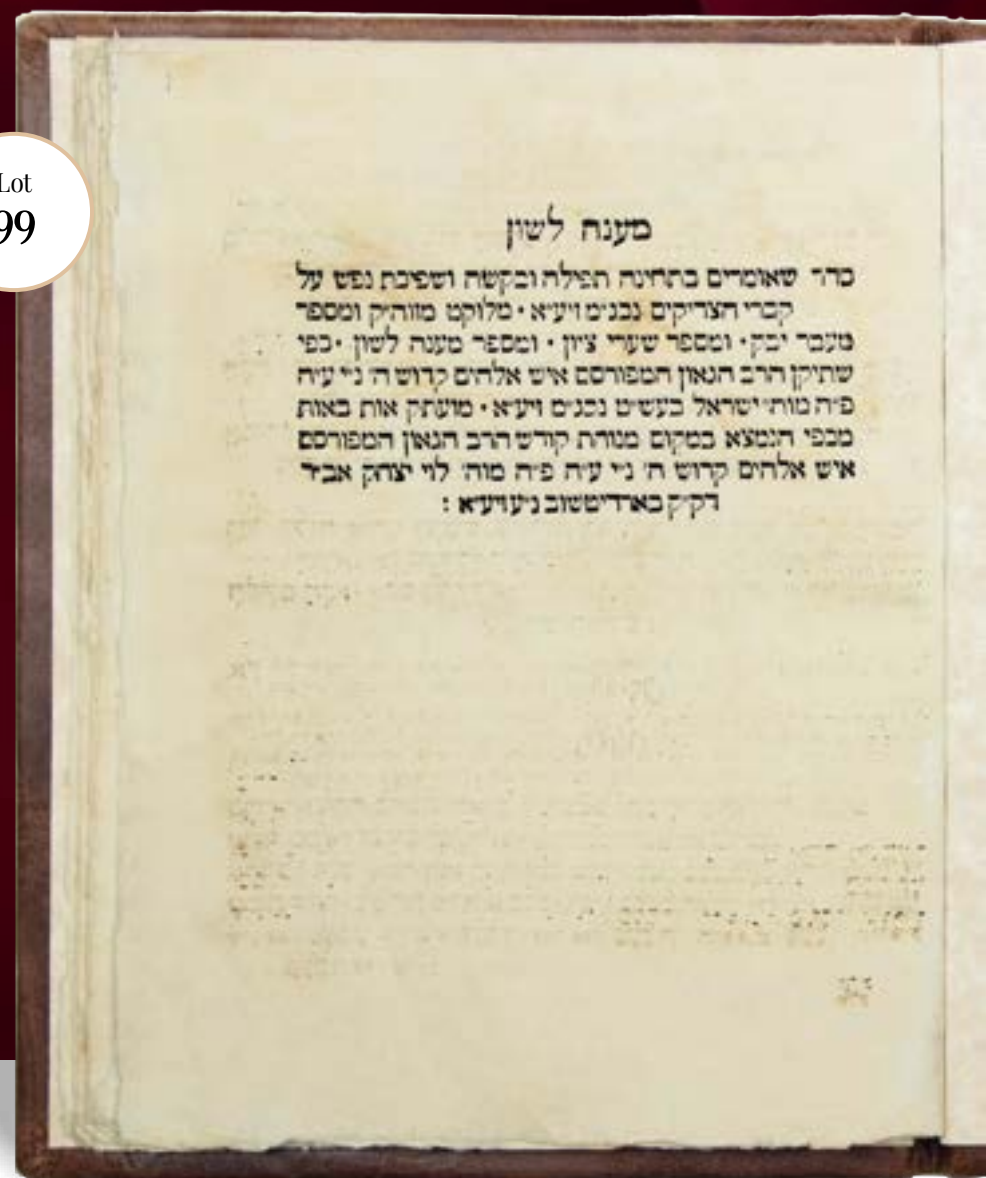 Lot
99
מענה לשון
סדר שאומרים בתחינה תפילה ובקשה ושפיכת נפש על
קברי הצדיקים נבג״מ זיע״א • מלוקט מזוה״ק ומספר
מעבר יבק • ומספר שערי ציון • ומספר מענה לשון • כפי
שתיקן הרב הגאון המפורסם איש אלהים קדוש ה׳ נ״י ע״ה
פ״ה מוה׳ ישראל בעש״ט נבג״ם זיע״א • מועתק אות באות
מכפי הנמצא במקום מנוחת קודש הרב הגאון המפורסם
איש אלהים קדוש ה׳ נ״י ע״ה פ״ה מוה׳ לוי יצחק אב״ד
דק״ק בארדיטשוב נ״ע זיע״א :